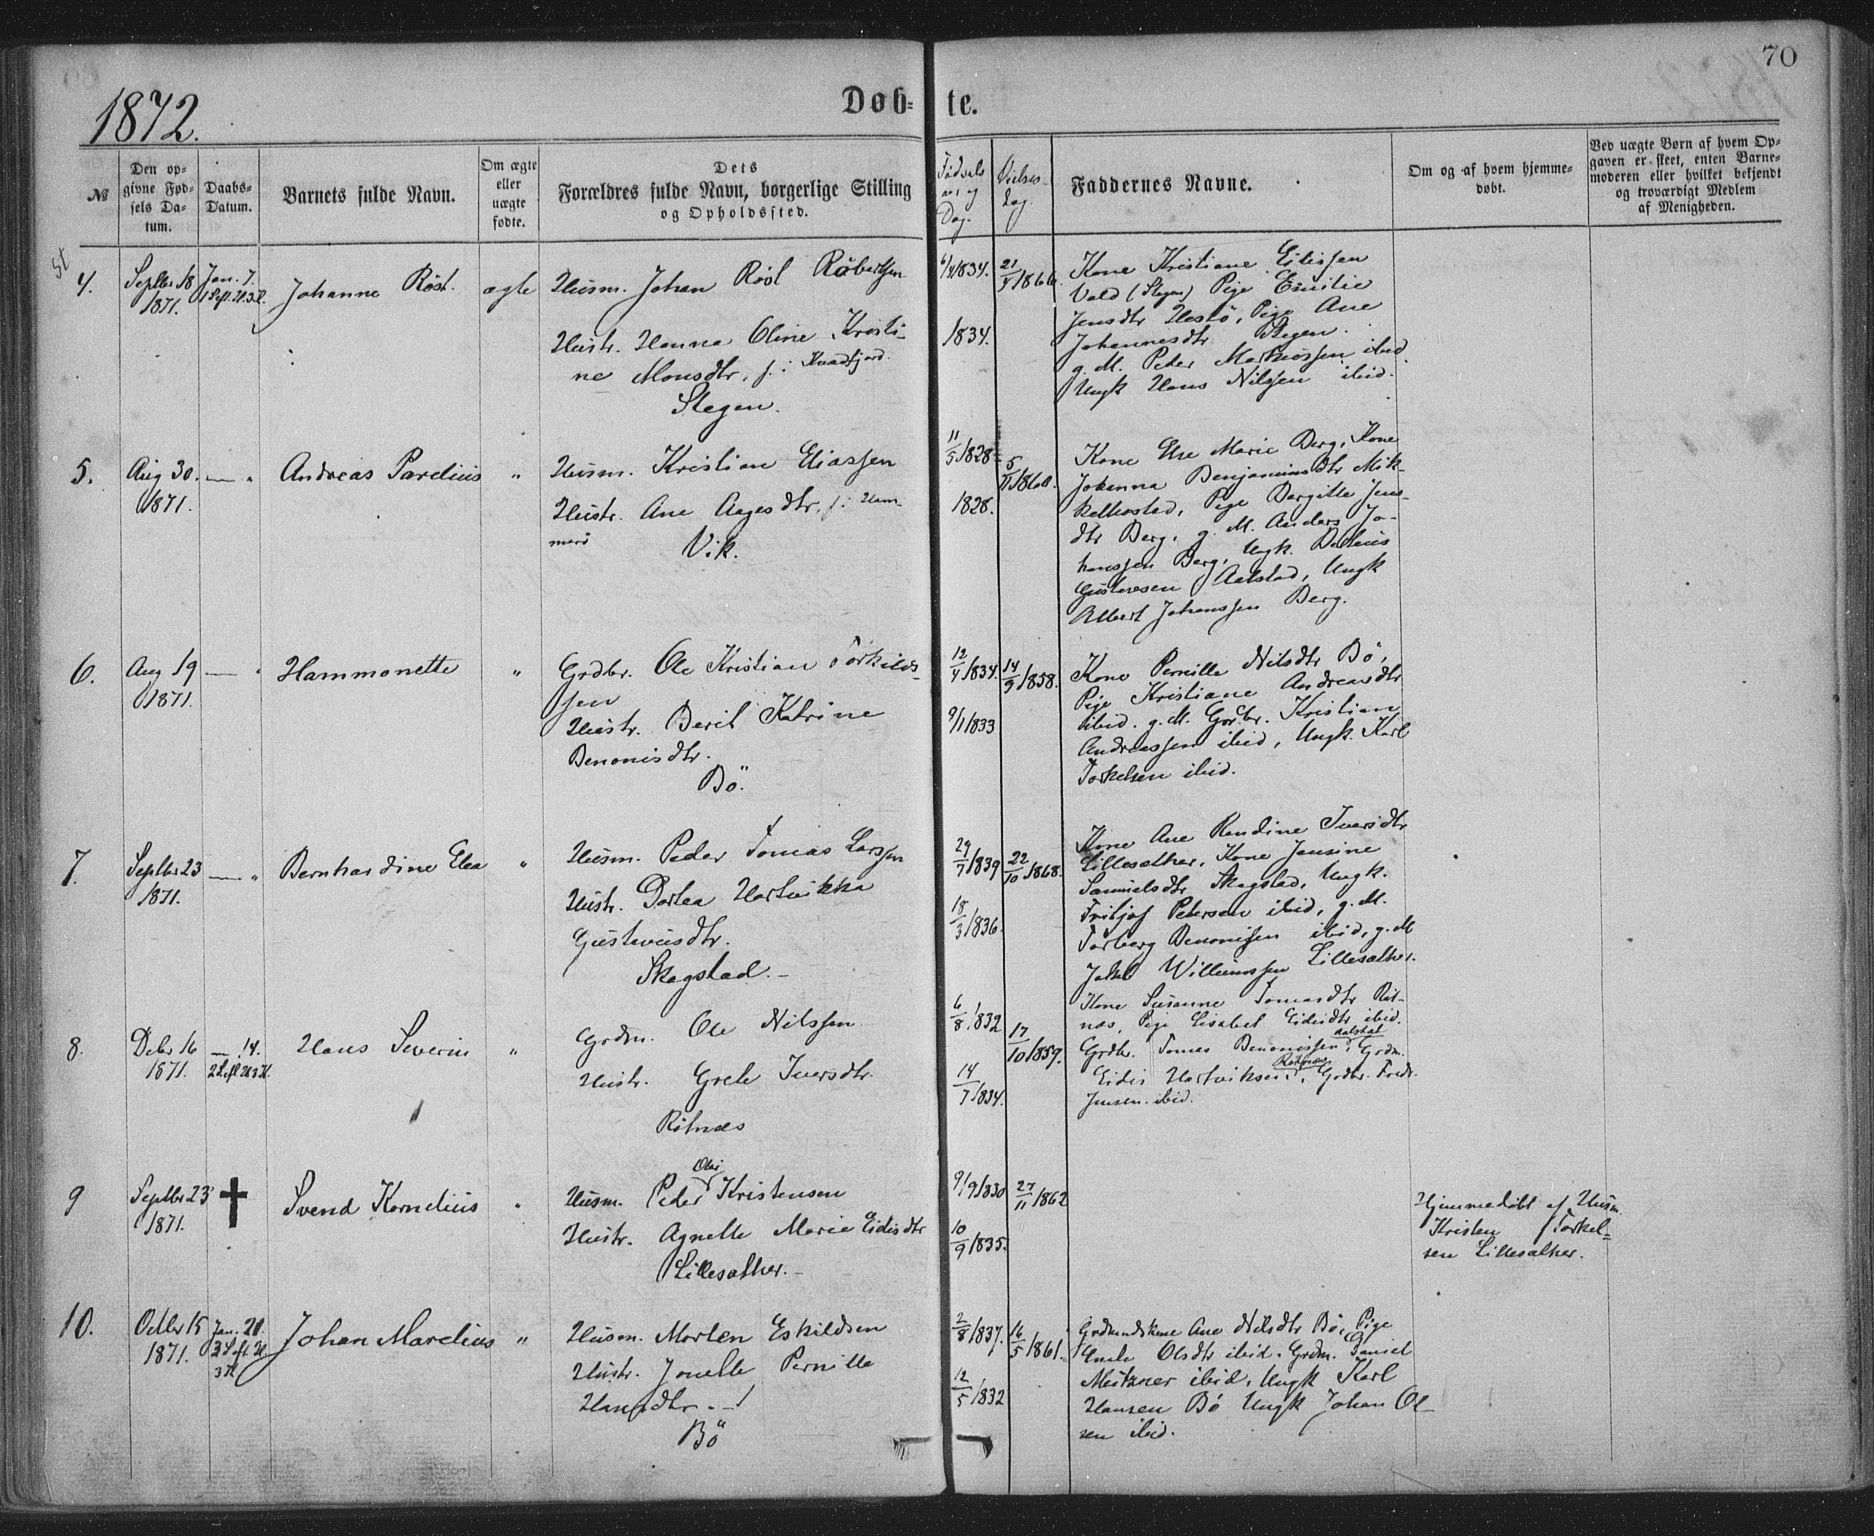 70
1872.
Døb- te.
№
Den op-
givne Fød-
sels Da-
tum.
Daabs-
Datum.
Barnets fulde Navn.
Om ægte
eller
uægte
fødte.
Dets
Forældres fulde Navn, borgerlige Stilling
og Opholdssted.
Fødsels
Dag.
Vielses-
Dag.
Faddernes Navne.
Om og af hvem hjemme-
døbt.
Ved uægte Børn af hvem Op-
gaven er skeet, enten Barne-
moderen eller hvilket bekjendt
og troværdigt Medlem
af Menigheden.
4.
Septbr 18
1871.
Jan. 7.
Johanne Röst.
ægte
Husm. Johan Röst Robertsen
Hustr. Hanna Oline Kristi-
ne Monsdtr, f. i Kvædfjord
Stegen.
1834.
1834.
21/ 1866.
Kone Kristiane Eilissen
Vold (Stegen) Pige Emilie
Jensdtr Hestö, Pige Ane
Johannesdtr Stegen.
g. M. Peder Markussen ibid.
Ungk Hans Nilssen ibid.
5.
Aug 30.
1871.
— "
Andreas Parelius
"
Husm. Kristian Eliassen
Hustr. Ane Aagesdtr, f. i Ham-
merö
Vik.
11/5 1828
1828.
5/11 1860.
Kone Else Marie Berg, Kone
Johanna Benjaminsdtr Mik-
kelbostad, Pige Bergitte Jens-
dtr Berg, g. M. Anders Jo-
hanssen Berg, Ungk.
Gustavesen Aalstad, Ungk
Albert Johanssen Berg.
6.
Aug 19
1871.
— "
Hammonette
"
Grdbr. Ole Kristian Torkilds-
sen
Hustr. Berit Katrine
Benonisdtr.
Bö.
12/4 1834.
9/1 1833
14/9 1858.
Kone Pernille Nilsdtr Bö,
Pige Kristiane Andreasdtr
ibid. g. M. Grdbr. Kristian
Andreassen ibid, Ungk. Karl
Torkelsen ibid.
7.
Septbr 23
1871.
— "
Bernhardine Elea
"
Husm. Peder Tomas Larssen
Hustr. Dortea Hartvikka
Gustavusdtr.
Skagstad.—
29/7 1839
18/3 1836.
22/10 1868.
Kone Ane Randine Iversdtr
Lillesæther, Kone Jensine
Samuelsdtr Skagstad, Ungk.
Fritjof Petersen ibid, g. M.
Torberg Benonissen ibid, g. M
Jakob Williumssen Lillesæther.
8.
Debr 16
1871.
— 14.
Hans Severin
"
Grdm. Ole Nilssen
Hustr. Grete Iversdtr.
Rotnæs
6/8 1832
14/7 1834.
17/10 1859.
Kone Susanne Tomasdtr Rot-
næs, Pige Lisabet Eidisdtr ibid.
Aalstad
Grdbr. Tomas Benonissen, Grdm.
Rotnæs
Eidis Hartviksen, Grdbr. Fredr.
Jensen ibid.
9
Septbr 23
1871.
✝
Svend Kornelius
"
Olai
Husm. Peder Kristensen
Hustr. Agnette Marie Eidisdtr
Lillesæther.—
9/9 1830
10/9 1835.
27/11 1862
Hjemmedöbt af Husm.
Kristen Torkel-
sen Lillesæther.
10.
Octbr 15
1871.
Jan. 21.
Johan Marelius
"
Husm. Morten Eskildsen
Hustr. Jonette Pernille
Hansdtr.—
Bö
2/8 1837.
12/5 1832
16/5 1861.
Grdmandskone Ane Nilsdtr Bö, Pige
Olsdtr ibid. Grdm. Daniel
Meitzner ibid, Ungk Karl
Hansen Bö Ungk Johan Ol-
sen ibid.